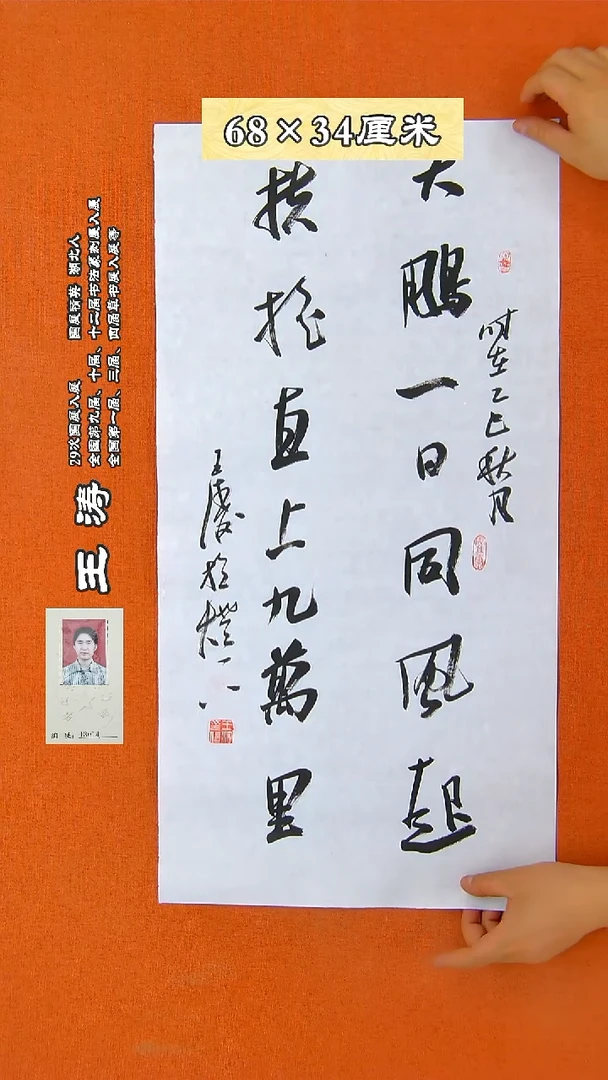 68×34厘米
时在乙巳秋月
大鹏一日同风起
扶摇直上九萬里
王涛
王涛
29次国展入展 国展精英 湖北人
全国第九届、十届、十二届书法篆刻展入展
全国第一届、三届、四届草书展入展等